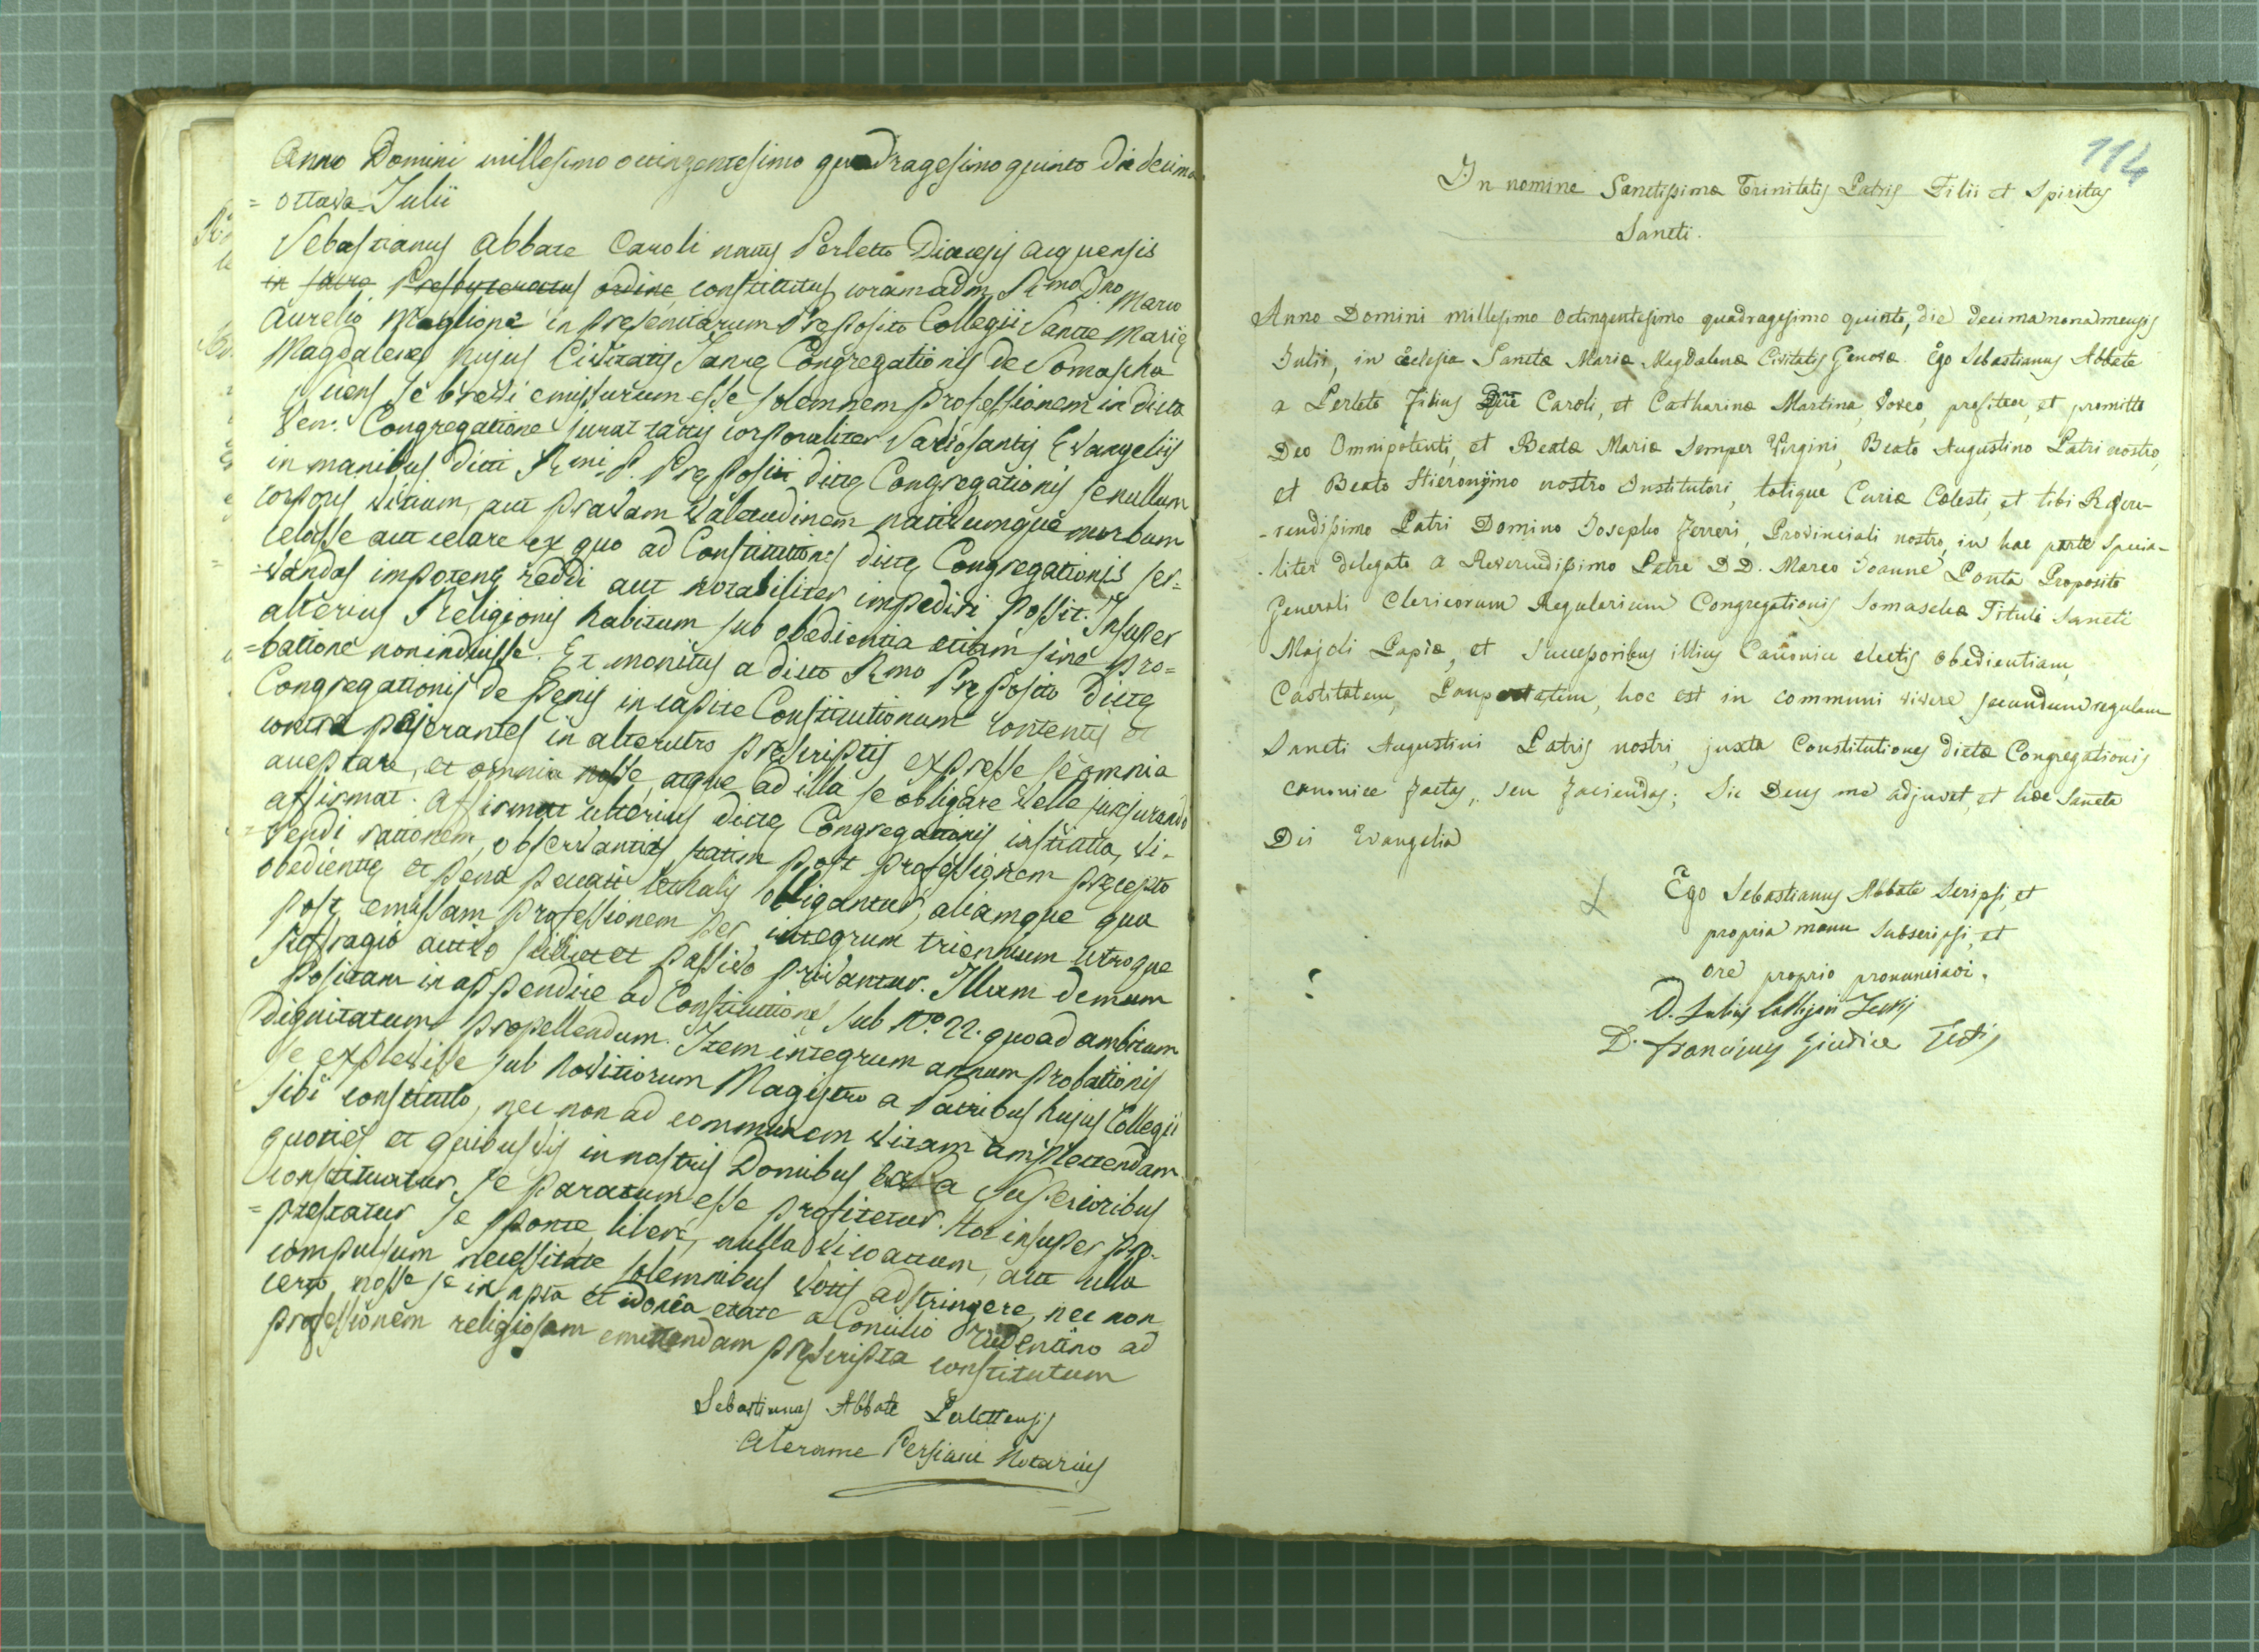 Anno Domini millesimo octingentesimo quadragesimo quinto die decima
= ottava Julii
Sebastianus Abbate Caroli natus Perletto Diœcesis Acquensis
in sacro Presbyteratus ordine constitutus coram adm. Rmo Dno Marco
Aurelio Maglione in presentiarum Preposito Collegii Sancte Marie
Magdalene hujus Civitatis Janue Congregationis de Somascha
se brevi emissurum esse solemnem professionem in dicta
Ven: Congregatione jurat tactis corporaliter Sacrosantis Evangeliis
in manibus dicti Rmi P. Prepositi dicte Congregationis se nullum
corporis vitium, aut pravam valetudinem nativumque morbum
celasse aut celare ex quo ad Constitutiones dicte Congregationis ser=
=vandas impotens reddi aut notabiliter impediri possit. Insuper
alterius Religionis habitum sub obedientia etiam sine pro=
=batione non induisse. Et monitus a dicto Rmo Preposito dicte
Congregationis de penis in capite Constitutionum contentis et
contra pejerantes in alterutro prescriptis expresse se omnia
acceptare, et omnia nosse, atque ad illa se obligare velle jurejurando
affirmat. Affirmat ulterius dicte Congregationis instituta, vi-
=vendi rationem, observantias statim post professionem precepto
obedientie et pena peccati lethalis obligantur, aliamque qua
post emissam professionem per integrum triennium utroque
suffragio activo scilicet et passivo privantur. Illam demum
positam in appendice ad Constitutiones sub No. 22. quoad ambitum
dignitatum propellendum. Item integrum annum probationis
se explevisse sub Novitiorum Magistro a Patribus hujus Collegii
sibi constituto, nec non ad communem vitam amplectendam
quoties et quibusvis in nostris Domibus a Superioribus
constituatur se paratum esse profitetur. Hoc insuper pro-
=ptestatur se sponte, libere, nulla vi coactum, aut ulla
compulsum necessitate solemnibus votis adstringere, nec non
certo nosse se in apta et idonea etate a Concilio Tridentino ad
professionem religiosam emittendam prescripta constitutum
Sebastianus Abbate Perlettensis
Aterame Persiani Notarius
114
In nomine Sanctissimæ Trinitatis Patris Filii et Spiritus
Sancti.
Anno Domini millesimo octingentesimo quadragesimo quinto, die decimanona mensis
Julii, in Ecclesia Sanctæ Mariæ Magdalenæ Civitatis Genovæ. Ego Sebastianus Abbate
a Perleto Filius Caroli, et Catharinæ Martina, voveo, profiteor, et promitto
Deo Omnipotenti, et Beatæ Mariæ Semper Virgini, Beato Augustino Patri nostro,
et Beato Hieronymo nostro Institutori, totique Curiæ Cœlesti, et tibi Reve-
-rendissimo Patri Domino Josepho Ferreri, Provinciali nostro, in hac parte specia-
-liter delegato a Reverendissimo Patre D D. Marco Joanne Ponta Preposito
Generali Clericorum Regularium Congregationis Somaschæ Tituli Sancti
Majoli Papiæ, et Successoribus illius Canonice electis obedientiam,
Castitatem, Paupertatem, hoc est in communi vivere secundum regulam
Sancti Augustini Patris nostri, juxta Constitutiones dictæ Congregationis
canonice factas, seu faciendas; Sic Deus me adjuvet, et hæc Sancta
Dei Evangelia
Ego Sebastianus Abbate Scripsi, et
propria manu subscripsi, et
ore proprio pronunciavi.
D. Testis
D. Franciscus Giudice Testis